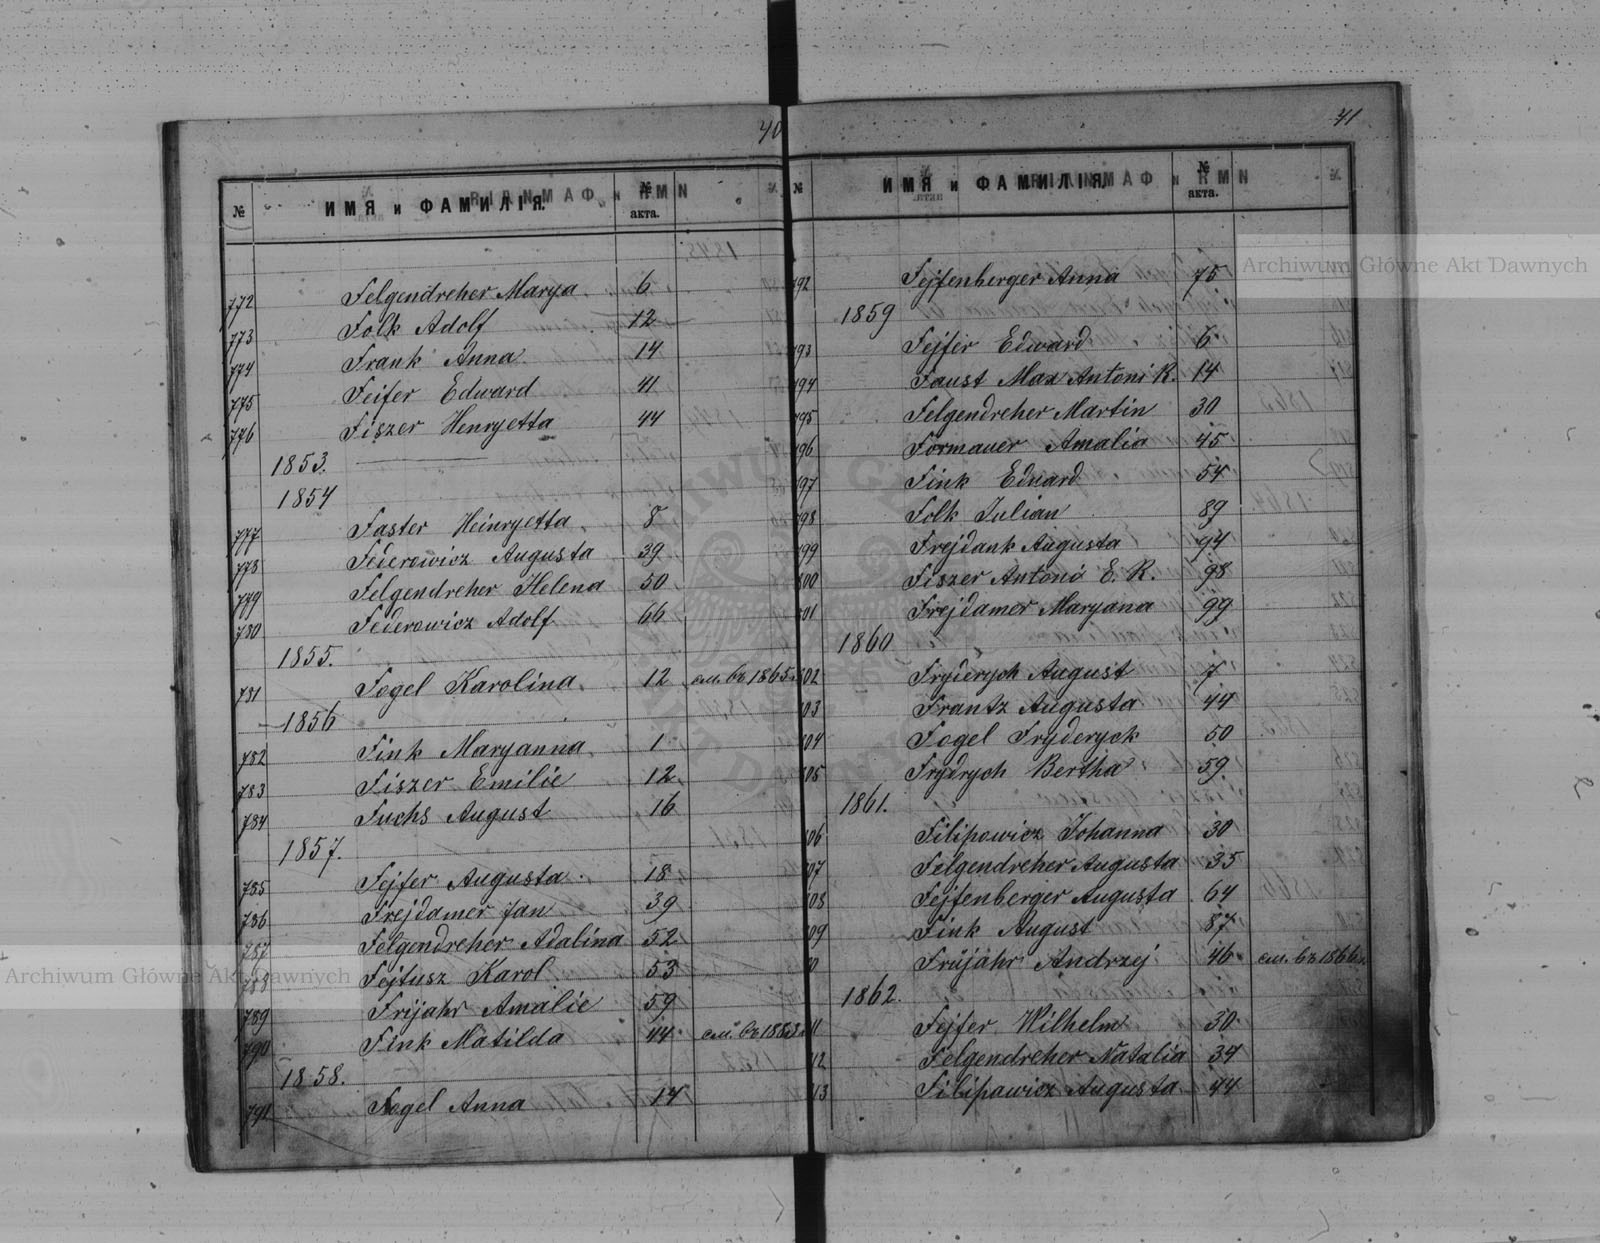 40
№ ИМЯ и ФАМИЛІЯ. № акта.
772 Felgendreher Marya 6
773 Folk Adolf 12
774 Frank Anna 14
775 Feifer Edward 41
776 Fiszer Henryetta 44
1853.
1854
777 Faster Heinryetta 8
778 Federowicz Augusta 39
779 Felgendreher Helena 50
780 Federowicz Adolf 66
1855.
781 Fogel Karolina 12 см. въ 1865
1856
782 Fink Maryanna 1
783 Fiszer Emilie 12
784 Fuchs August 16
1857.
785 Fejfer Augusta 18
786 Frejdamer Jan 39
787 Felgendreher Adalina 52
788 Fejtusz Karol 53
789 Frijahr Amalie 59
790 Fink Matilda 44 см. въ 1883
1858.
791 Fogel Anna 14
41
№ ИМЯ и ФАМИЛІЯ. № акта.
792 Fejfenberger Anna 75
1859
793 Fejfer Edward 6
794 Faust Max Antoni R. 14
795 Felgendreher Martin 30
796 Formauer Amalia 45
797 Fink Edward 54
798 Folk Julian 89
799 Frejdank Augusta 94
800 Fiszer Antoni E. R. 98
801 Frejdamer Maryana 99
1860
802 Fryderych August 7
803 Frantz Augusta 44
804 Fogel Fryderyck 50
805 Frydrych Bertha 59
1861.
06 Filipowicz Johanna 30
07 Felgendreher Augusta 35
08 Fejfenberger Augusta 64
09 Fink August 87
0 Frujahr Andrzej 46 см. въ 1866
1862.
11 Fejfer Wilhelm 30
12 Felgendreher Natalia 34
13 Filipowicz Augusta 44
Archiwum Główne Akt Dawnych
Archiwum Główne Akt Dawnych